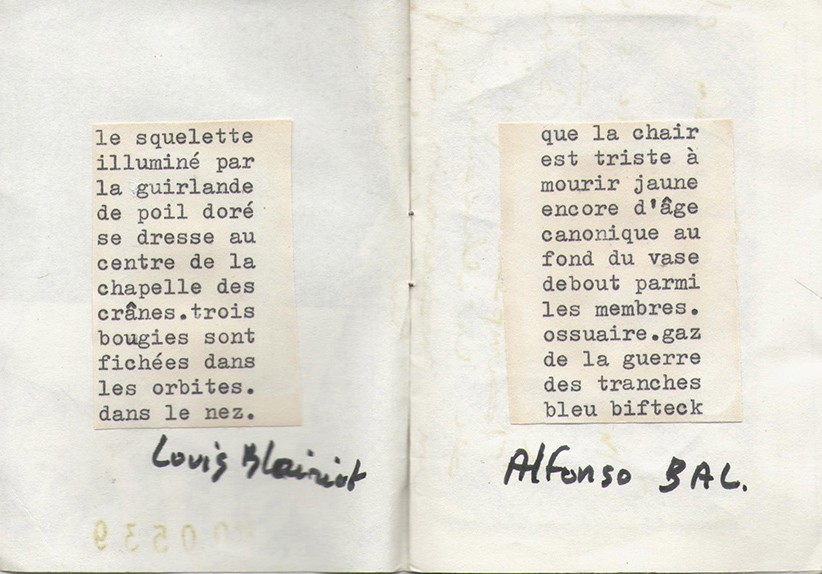 le squelette
illuminé par
la guirlande
de poil doré
se dresse au
centre de la
chapelle des
crânes.trois
bougies sont
fichées dans
les orbites.
dans le nez.
Louis Blairiot
que la chair
est triste à
mourir jaune
encore d'âge
canonique au
fond du vase
debout parmi
les membres.
ossuaire.gaz
de la guerre
des tranches
bleu bifteck
Alfonso BAL.
00539